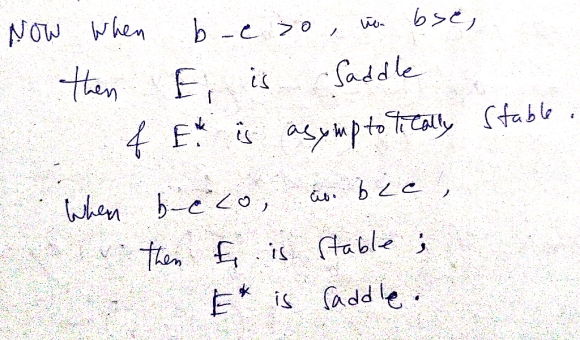 NOW when b-c>0, i.e. b>c,
then E₁ is Saddle
& E* is asymptotically Stable.
When b-c<0, i.e. b<c,
then E₁ is Stable;
E* is Saddle.